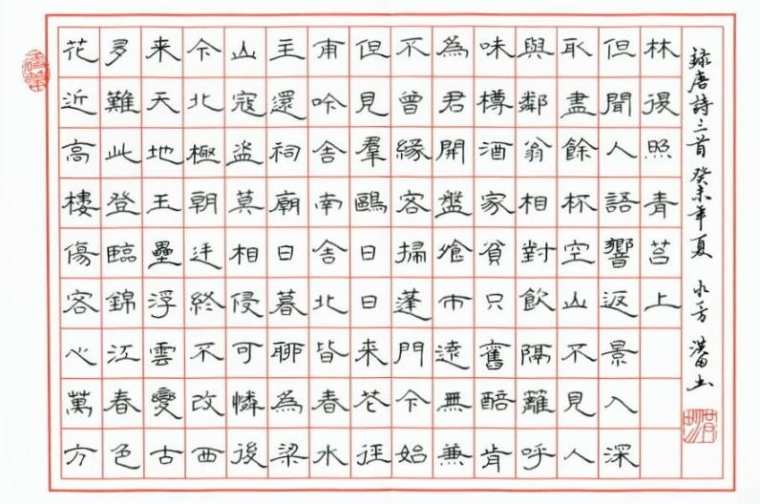 花近高樓傷客心萬方
多難此登臨錦江春色
来天地玉壘浮雲變古
今北極朝廷終不改西
山寇盜莫相侵可憐後
主還祠廟日暮聊為梁
甫吟舍南舍北皆春水
但見羣鷗日日来花徑
不曾緣客掃蓬門今始
為君開盤飧市遠無兼
味樽酒家貧只舊醅肯
與鄰翁相對飲隔籬呼
取盡餘杯空山不見人
但聞人語響返景入深
林復照青苔上
録唐詩三首 癸未年夏